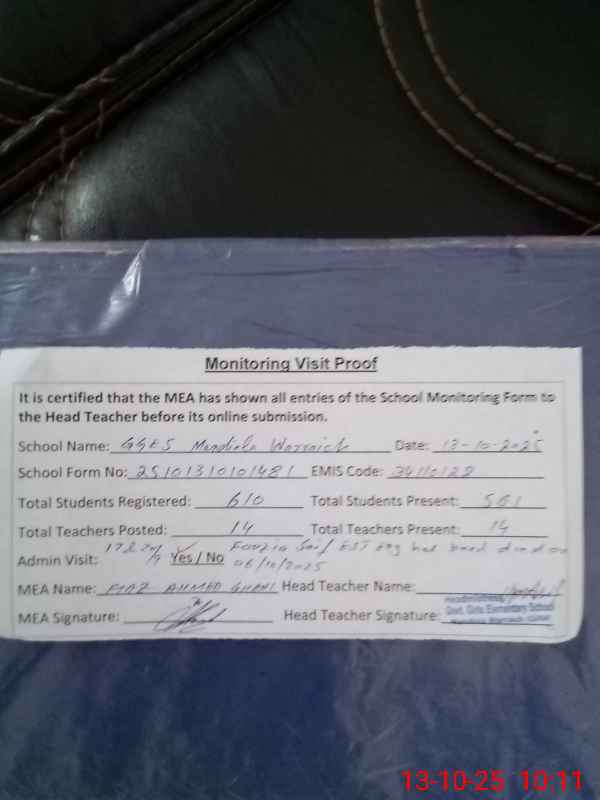 Monitoring Visit Proof
It is certified that the MEA has shown all entries of the School Monitoring Form to
the Head Teacher before its online submission.
School Name: GGES Mandiala Warraich Date: 13-10-2025
School Form No: 25101310101481 EMIS Code: 34110129
Total Students Registered: 610 Total Students Present: 561
Total Teachers Posted: 14 Total Teachers Present: 14
Fouzia Saif EST has been
Admin Visit: Yes / No 06/10/2025
MEA Name: FIAZ AHMED GHANI Head Teacher Name:
Headmistress
MEA Signature: Head Teacher Signature: Govt. Girls Elementary School
13-10-25 10:11